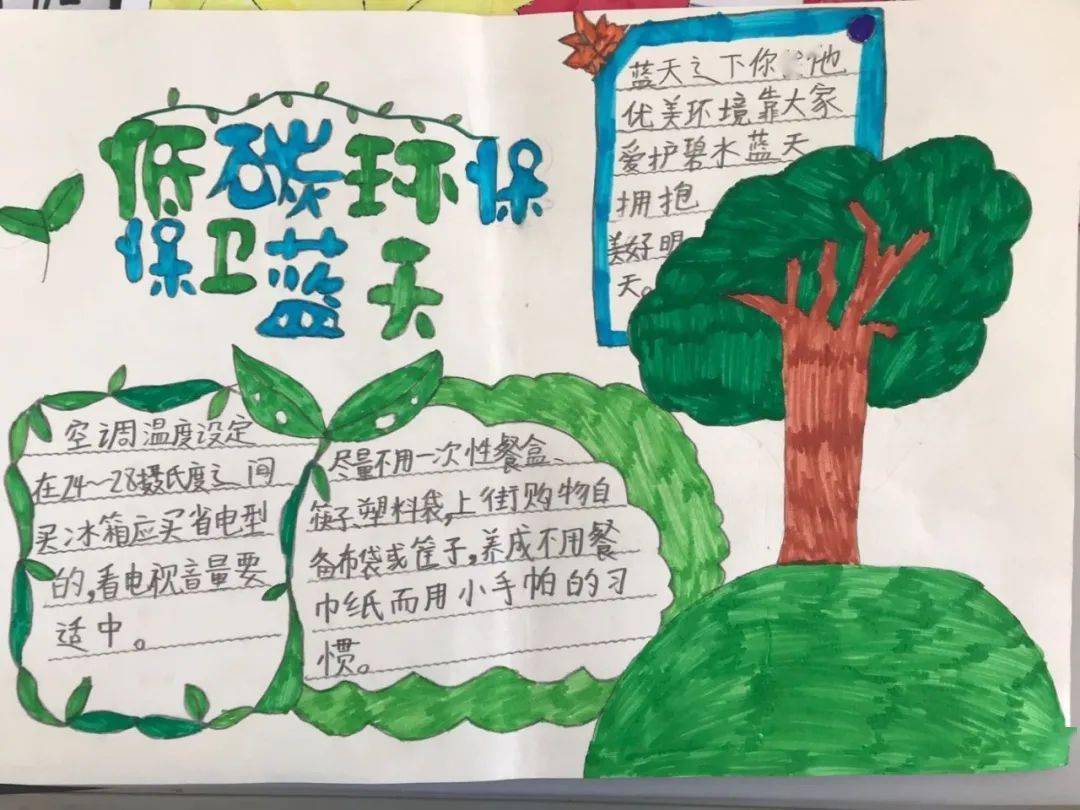 低碳环保
保卫蓝天
蓝天之下你 他
优美环境靠大家
爱护碧水蓝天
拥抱
美好明
天。
空调温度设定
在24～28摄氏度之间
买冰箱应买省电型
的,看电视音量要
适中。
尽量不用一次性餐盒、
筷子塑料袋,上街购物自
备布袋或筐子,养成不用餐
巾纸而用小手帕的习
惯。